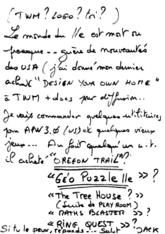 (TWM? LOGO? Tri?)
Le monde du //e est mort ou
presque... guère de nouveautés
des USA (j'ai donné mon dernier
achat "DESIGN YOUR OWN HOME"
à TWM + docs pour diffusion..
Je vais commander quelques utilitaires,
pour APW 3.0 (US) et quelques vieux
jeux... Au fait quelqu'un a-t-
il acheté "OREGON TRAIL"?
"Géo Puzzle IIe" ??
"The Tree House"?
(suite de PLAY ROOM)
"MATHS BLASTER"?
"RING QUEST"??
Si tu le peux, réponds... Salut